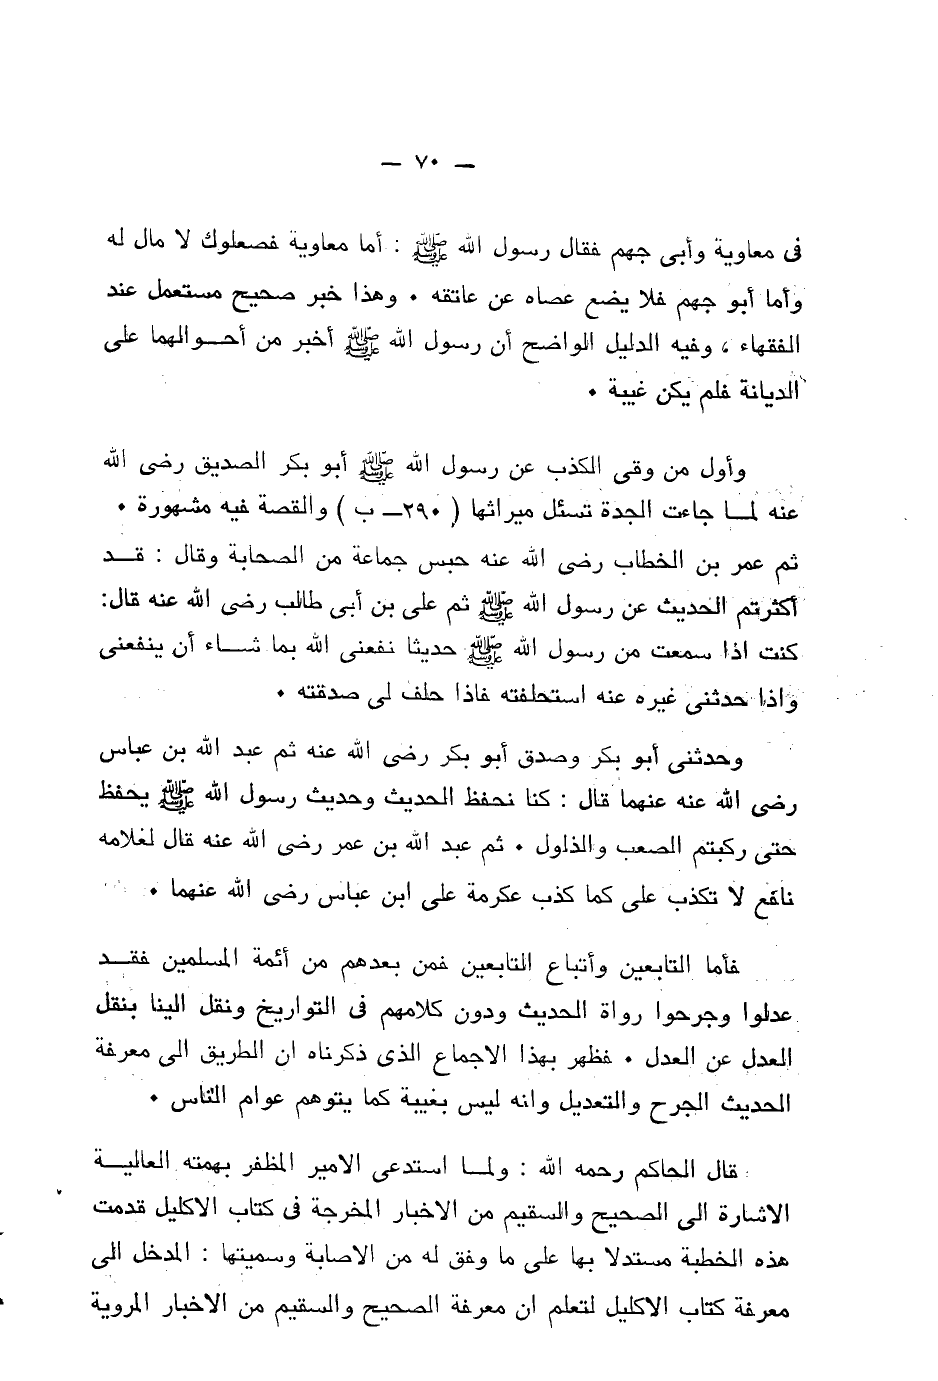 — ٧٠ —
فى معاوية وأبى جهم فقال رسول الله ﷺ : أما معاوية فصعلوك لا مال له
وأما أبو جهم فلا يضع عصاه عن عاتقه . وهذا خبر صحيح مستعمل عند
الفقهاء ، وفيه الدليل الواضح أن رسول الله ﷺ أخبر من أحوالهما على
الديانة فلم يكن غيبة .
وأول من وقى الكذب عن رسول الله ﷺ أبو بكر الصديق رضى الله
عنه لما جاءت الجدة تسئل ميراثها ( ٢٩٠ ـ ب ) والقصة فيه مشهورة .
ثم عمر بن الخطاب رضى الله عنه حبس جماعة من الصحابة وقال : قد
أكثرتم الحديث عن رسول الله ﷺ ثم على بن أبى طالب رضى الله عنه قال:
كنت اذا سمعت من رسول الله ﷺ حديثا نفعنى الله بما شاء أن ينفعنى
واذا حدثنى غيره عنه استحلفته فاذا حلف لى صدقته .
وحدثنى أبو بكر وصدق أبو بكر رضى الله عنه ثم عبد الله بن عباس
رضى الله عنه عنهما قال : كنا نحفظ الحديث وحديث رسول الله ﷺ يحفظ
حتى ركبتم الصعب والذلول . ثم عبد الله بن عمر رضى الله عنه قال لغلامه
نافع لا تكذب على كما كذب عكرمة على ابن عباس رضى الله عنهما .
فأما التابعين وأتباع التابعين فمن بعدهم من أئمة المسلمين فقد
عدلوا وجرحوا رواة الحديث ودون كلامهم فى التواريخ ونقل الينا بنقل
العدل عن العدل . فظهر بهذا الاجماع الذى ذكرناه ان الطريق الى معرفة
الحديث الجرح والتعديل وانه ليس بغيبة كما يتوهم عوام الناس .
قال الحاكم رحمه الله : ولما استدعى الامير المظفر بهمته العالية
الاشارة الى الصحيح والسقيم من الاخبار المخرجة فى كتاب الاكليل قدمت
هذه الخطبة مستدلا بها على ما وفق له من الاصابة وسميتها : المدخل الى
معرفة كتاب الاكليل لتعلم ان معرفة الصحيح والسقيم من الاخبار المروية